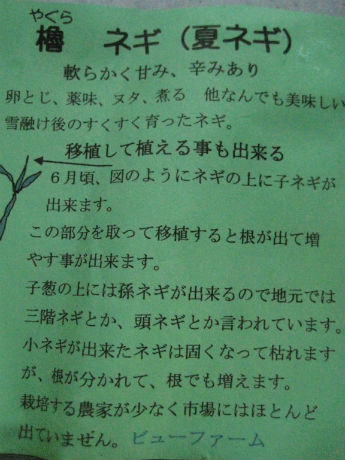 やぐら
櫓 ネギ（夏ネギ）
軟らかく甘み、辛みあり
卵とじ、薬味、ヌタ、煮る 他なんでも美味しい
雪融け後のすくすく育ったネギ。
移植して植える事も出来る
６月頃、図のようにネギの上に子ネギが
出来ます。
この部分を取って移植すると根が出て増
やす事が出来ます。
子葱の上には孫ネギが出来るので地元では
三階ネギとか、頭ネギとか言われています。
小ネギが出来たネギは固くなって枯れます
が、根が分かれて、根でも増えます。
栽培する農家が少なく市場にはほとんど
出ていません。ビューファーム